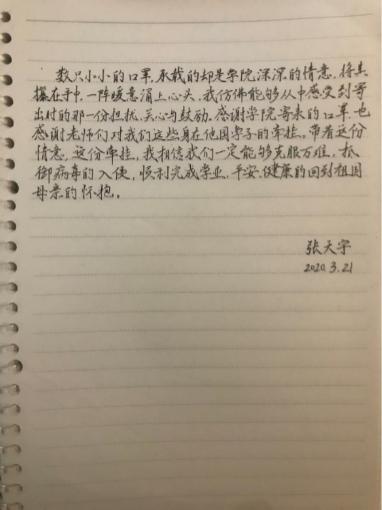 数只小小的口罩,承载的却是学院深深的情意,将其
握在手中,一阵暖意涌上心头,我仿佛能够从中感受到寄
出时的那一份担忧、关心与鼓励。感谢学院寄来的口罩,也
感谢老师们对我们这些身在他国学子的牵挂。带着这份
情意,这份牵挂,我相信我们一定能够克服万难,抵
御病毒的入侵,顺利完成学业,平安、健康的回到祖国
母亲的怀抱。
张天宇
2020.3.21